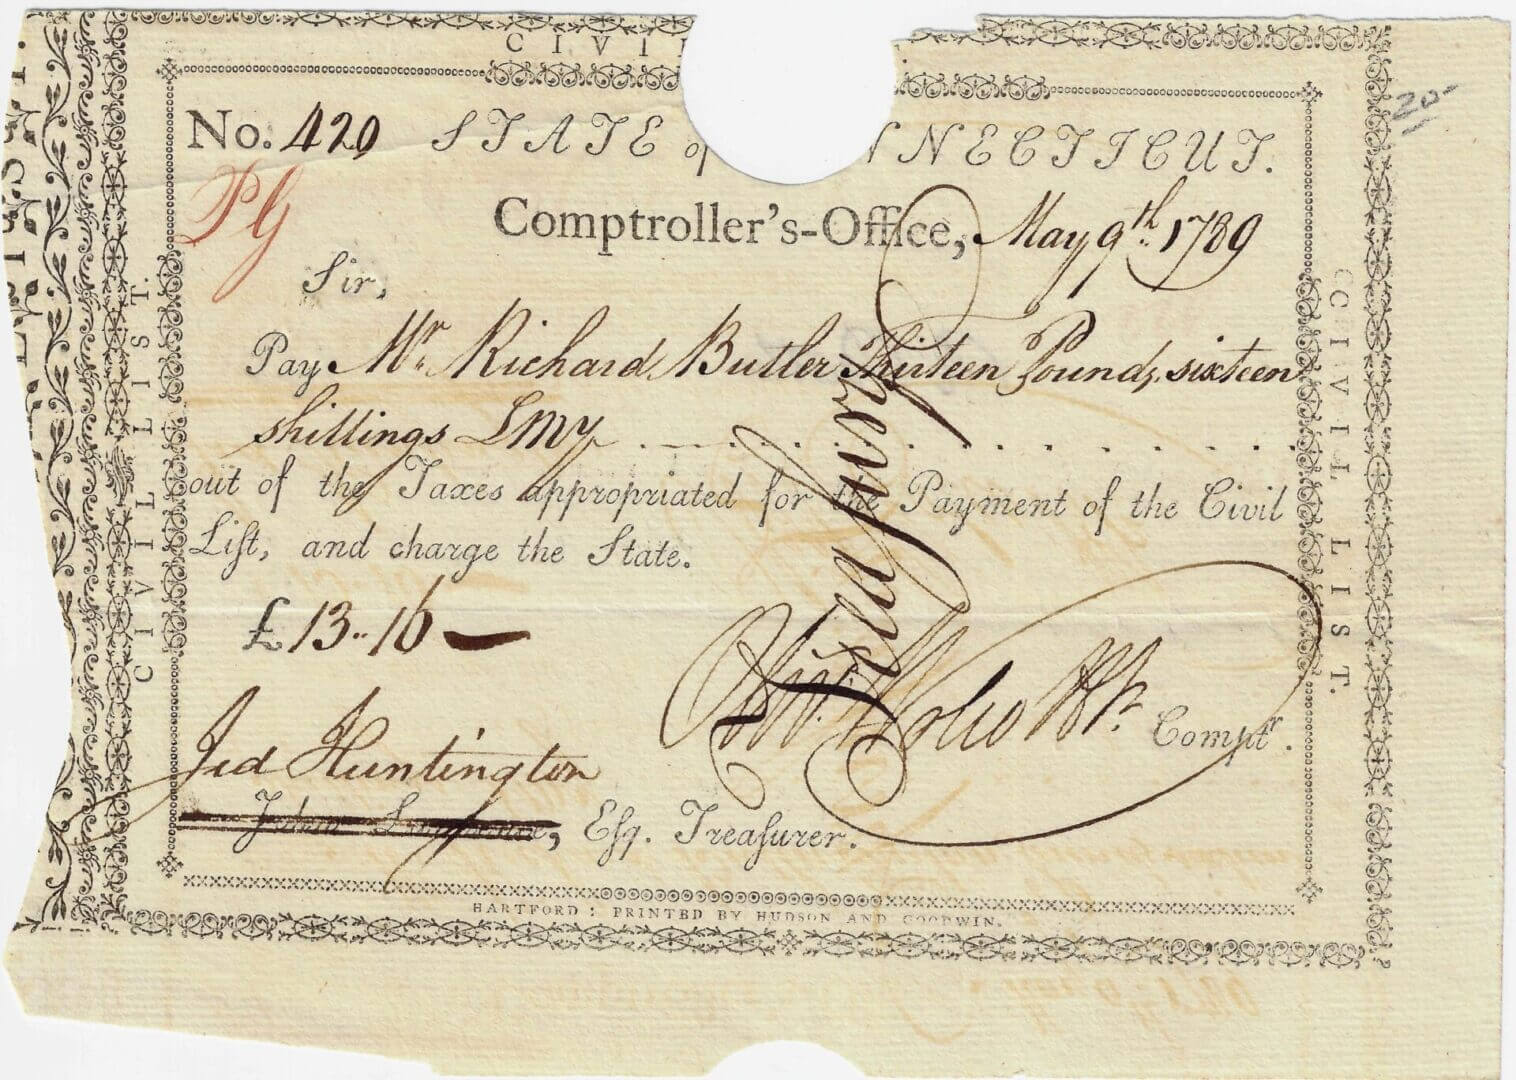 CIVI
No. 420 STATE of NNECTICUT.
20-
PG
Comptroller's-Office, May 9th. 1789
Sir,
Pay Mr. Richard Butler Thirteen Pounds, sixteen
shillings LMy
out of the Taxes appropriated for the Payment of the Civil
Liſt, and charge the State.
£ 13.. 16
Oliv. Wolcott Jr. Compt'r.
Jed Huntington
Eſq. Treaſurer.
HARTFORD: PRINTED BY HUDSON AND GOODWIN.
CIVIL LIST.
CIVIL LIST.